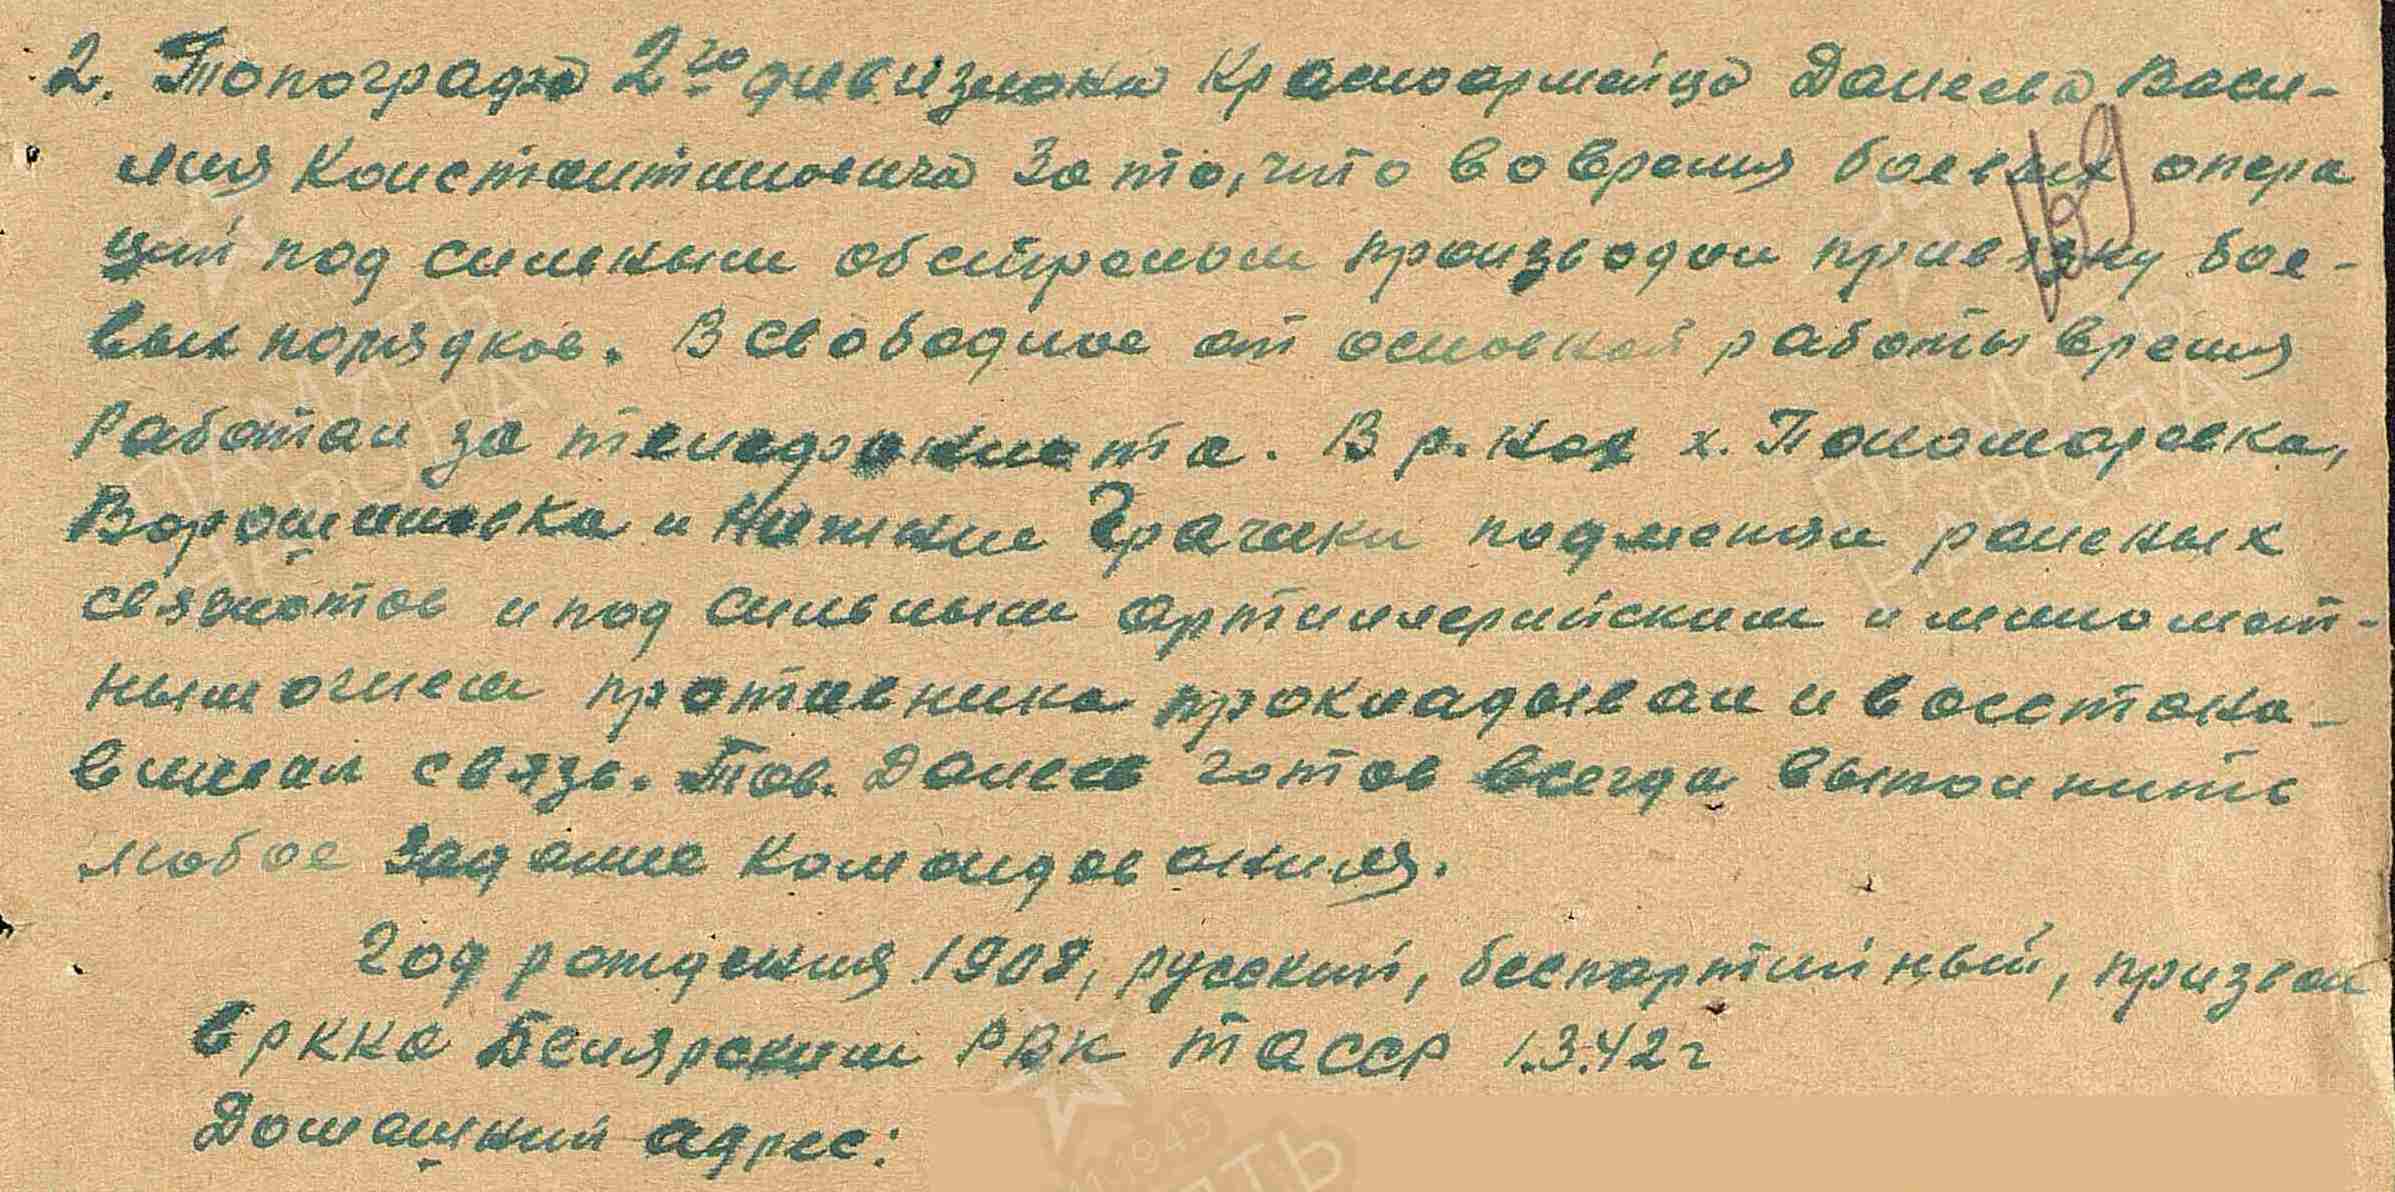 2. Топографа 2го дивизиона Красноармейца Данеева Васи-
лия Константиновича За то, что во время боевых опера
ций под сильным обстрелом производил привязку бое-
вых порядков. В свободное от основной работы время
работал за телефониста. В р-нах х. Пономаревка,
Ворошиловка и Нижние Грачики подменял раненых
связистов и под сильным артиллерийским и миномет-
ным огнем противника прокладывал и восстана-
вливал связь. Тов. Данеев готов всегда выполнить
любое задание командования.
Год рождения 1908, русский, беспартийный, призван
в РККА Билярским РВК ТАССР 1.3.42 г
Домашний адрес:
ПАМЯТЬ
НАРОДА
ПАМЯТЬ
НАРОДА
1945